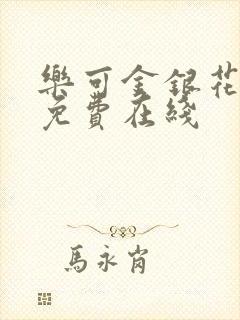 樂可金銀花
免費在綫
馬永肖